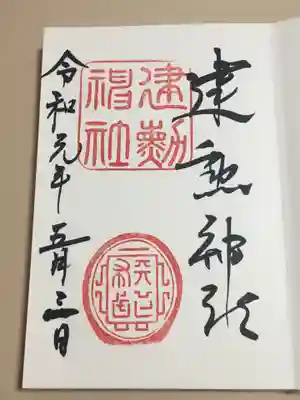 建勲神社
建勳
神社
令和元年五月三日